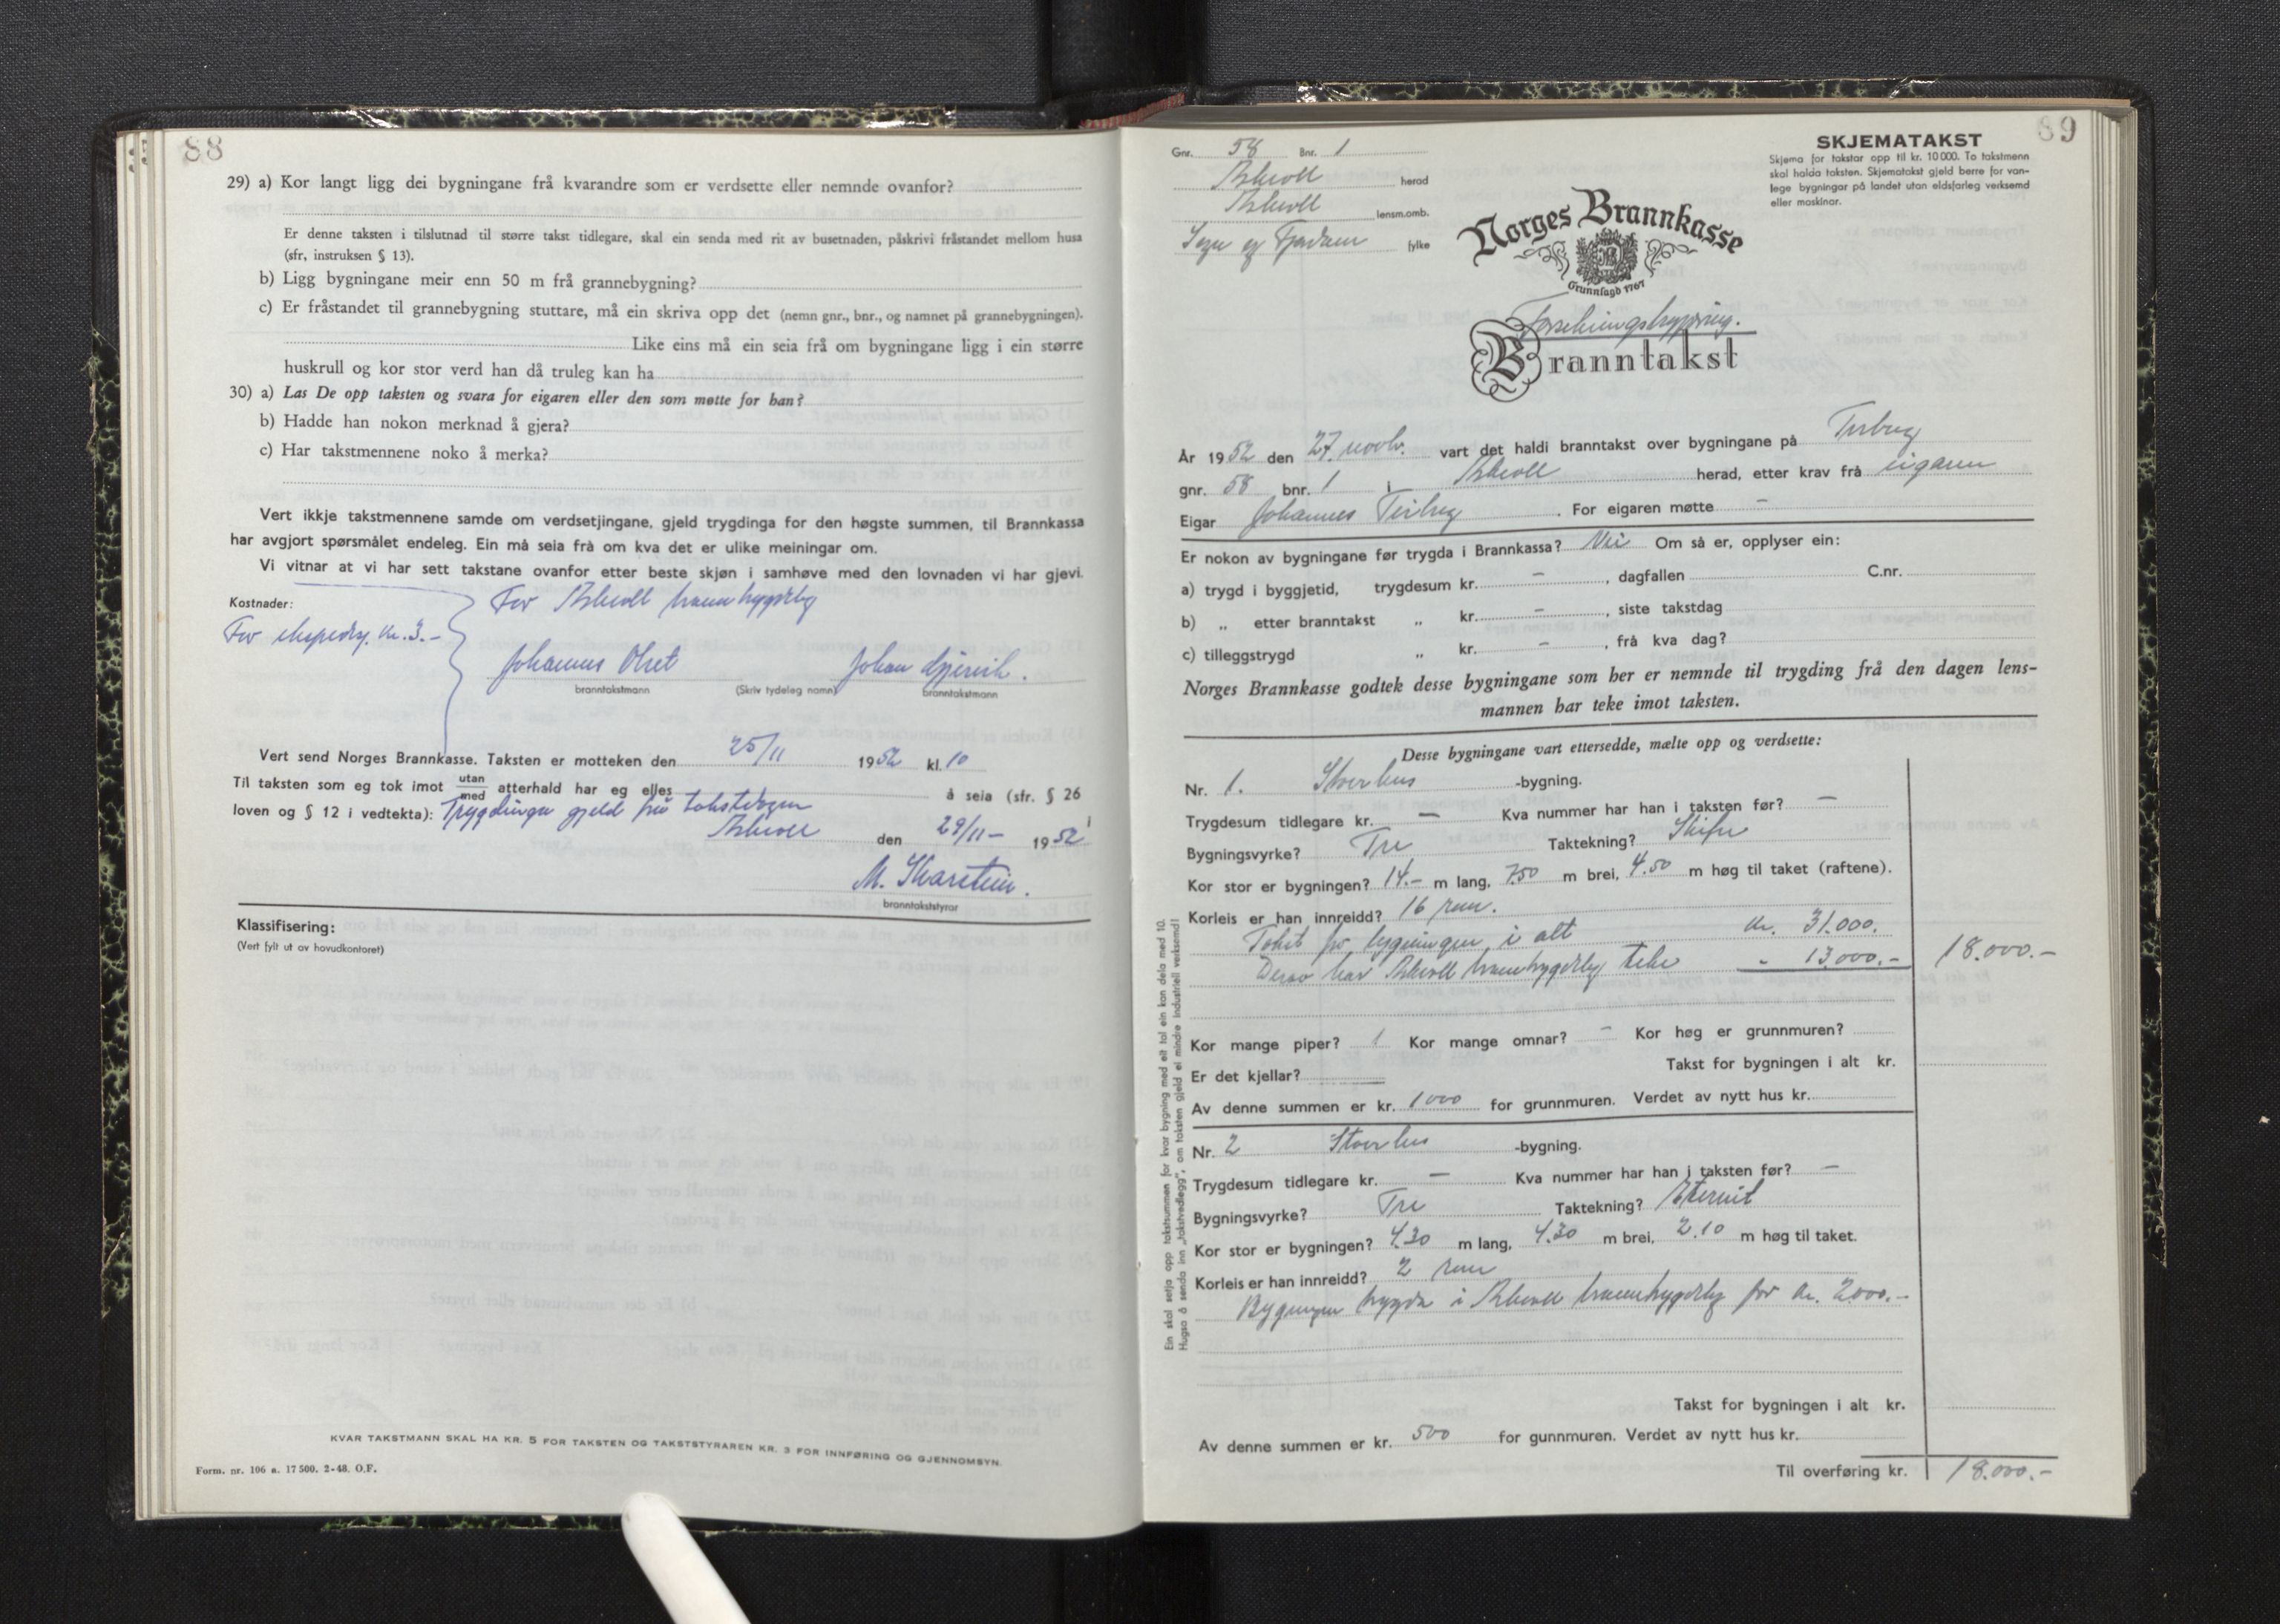 88
29) a) Kor langt ligg dei bygningane frå kvarandre som er verdsette eller nemnde ovanfor?
Er denne taksten i tilslutnad til større takst tidlegare, skal ein senda med rit av busetnaden, påskrivi fråstandet mellom husa
(sfr, instruksen § 13).
b) Ligg bygningane meir enn 50 m frå grannebygning?
c) Er fråstandet til grannebygning stuttare, må ein skriva opp det (nemn gnr., bnr., og namnet på grannebygningen).
Like eins må ein seia frå om bygningane ligg i ein større
huskrull og kor stor verd han då truleg kan ha
30) a) Las De opp taksten og svara for eigaren eller den som møtte for han?
b) Hadde han nokon merknad å gjera?
c) Har takstmennene noko å merka?
Vert ikkje takstmennene samde om verdsetjingane, gjeld trygdinga for den høgste summen, til Brannkassa
har avgjort spørsmålet endeleg. Ein må seia frå om kva det er ulike meiningar om.
Vi vitnar at vi har sett takstane ovanfor etter beste skjøn i samhøve med den lovnaden vi har gjevi.
Kostnader:
For Askvoll branntrygdelag
For ekspedsj. kr. 3.-
Johannes Olset Johan
branntakstmann (Skriv tydeleg namn) branntakstmann
Vert send Norges Brannkasse. Taksten er motteken den 25/11 1952 kl. 10
Til taksten som eg tok imot utan/med atterhald har eg elles å seia (sfr. § 26 i
loven og § 12 i vedtekta): Trygdinga gjeld frå takstdagen
Askvoll den 29/11- 1952
M. Skarstein.
branntakststyrar
Klassifisering:
(Vert fylt ut av hovudkontoret)
KVAR TAKSTMANN SKAL HA KR. 5 FOR TAKSTEN OG TAKSTSTYRAREN KR. 3 FOR INNFØRING OG GJENNOMSYN.
Form. nr. 106 a. 17 500. 2-48. O.F.
89
Gnr. 58 Bnr. 1
Askvoll herad
Askvoll lensm.omb.
Sogn og Fjordane fylke
SKJEMATAKST
Skjema for takstar opp til kr. 10 000. To takstmenn
skal halda taksten. Skjematakst gjeld berre for van-
lege bygningar på landet utan eldsfarleg verksemd
eller maskinar.
Norges Brannkasse
Grunnlagd 1767
Branntakst
År 1952 den 27. novbr. vart det haldi branntakst over bygningane på
gnr. 58 bnr. 1 i Askvoll herad, etter krav frå eigaren
Eigar Johannes For eigaren møtte -
Er nokon av bygningane før trygda i Brannkassa? Nei Om så er, opplyser ein:
a) trygd i byggjetid, trygdesum kr. - , dagfallen C.nr.
b) „ etter branntakst „ kr. - , siste takstdag
c) tilleggstrygd „ kr. - , frå kva dag?
Norges Brannkasse godtek desse bygningane som her er nemnde til trygding frå den dagen lens-
mannen har teke imot taksten.
Desse bygningane vart ettersedde, mælte opp og verdsette:
Nr. 1. Stovehus -bygning.
Trygdesum tidlegare kr. - Kva nummer har han i taksten før? -
Bygningsvyrke? Tre Taktekning? Skifer
Kor stor er bygningen? 14.- m lang, 7.50 m brei, 4.50 m høg til taket (raftene).
Korleis er han innreidd? 16 rum.
Takst for bygningen i alt kr. 31.000.
Derav har Askvoll branntrygdelag teke „ 13.000.- 18.000.-
Kor mange piper? 1 Kor mange omnar? - Kor høg er grunnmuren?
Er det kjellar? Takst for bygningen i alt kr.
Av denne summen er kr. 1000 for grunnmuren. Verdet av nytt hus kr.
Nr. 2 Stovehus -bygning.
Trygdesum tidlegare kr. - Kva nummer har han i taksten før? -
Bygningsvyrke? Tre Taktekning? Eternit
Kor stor er bygningen? 4.30 m lang, 4.30 m brei, 2.10 m høg til taket.
Korleis er han innreidd? 2 rum
Bygningen trygda i Askvoll branntrygdelag for kr. 2000.-
Takst for bygningen i alt kr.
Av denne summen er kr. 500 for gunnmuren. Verdet av nytt hus kr.
Til overføring kr. 18.000.-
Ein skal setja opp takstsummen for kvar bygning med eit tal ein kan dela med 10.
Hugsa å senda inn „takstvedlegg", om taksten gjeld ei mindre industriell verksemd!